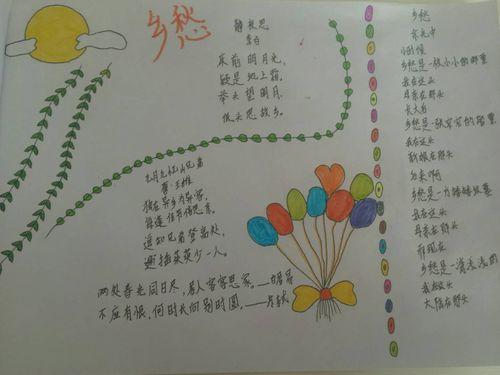 乡愁
静夜思
李白
床前明月光,
疑是地上霜,
举头望明月,
低头思故乡。
九月九忆山东兄弟
唐·王维
独在异乡为异客,
每逢佳节倍思亲。
遥知兄弟登高处,
遍插茱萸少一人。
两处春光同日尽,居人 客思家。
不应有恨,何时长向别时圆。——苏轼
乡愁
余光中
小时候
乡愁是一枚小小的邮票
我在这头
母亲在那头
长大后
乡愁是一张窄窄的船票
我在这头
新娘在那头
后来啊
乡愁是一方矮矮坟墓
我在这头
母亲在那头
而现在
乡愁是一湾浅浅的
我在这头
大陆在那头